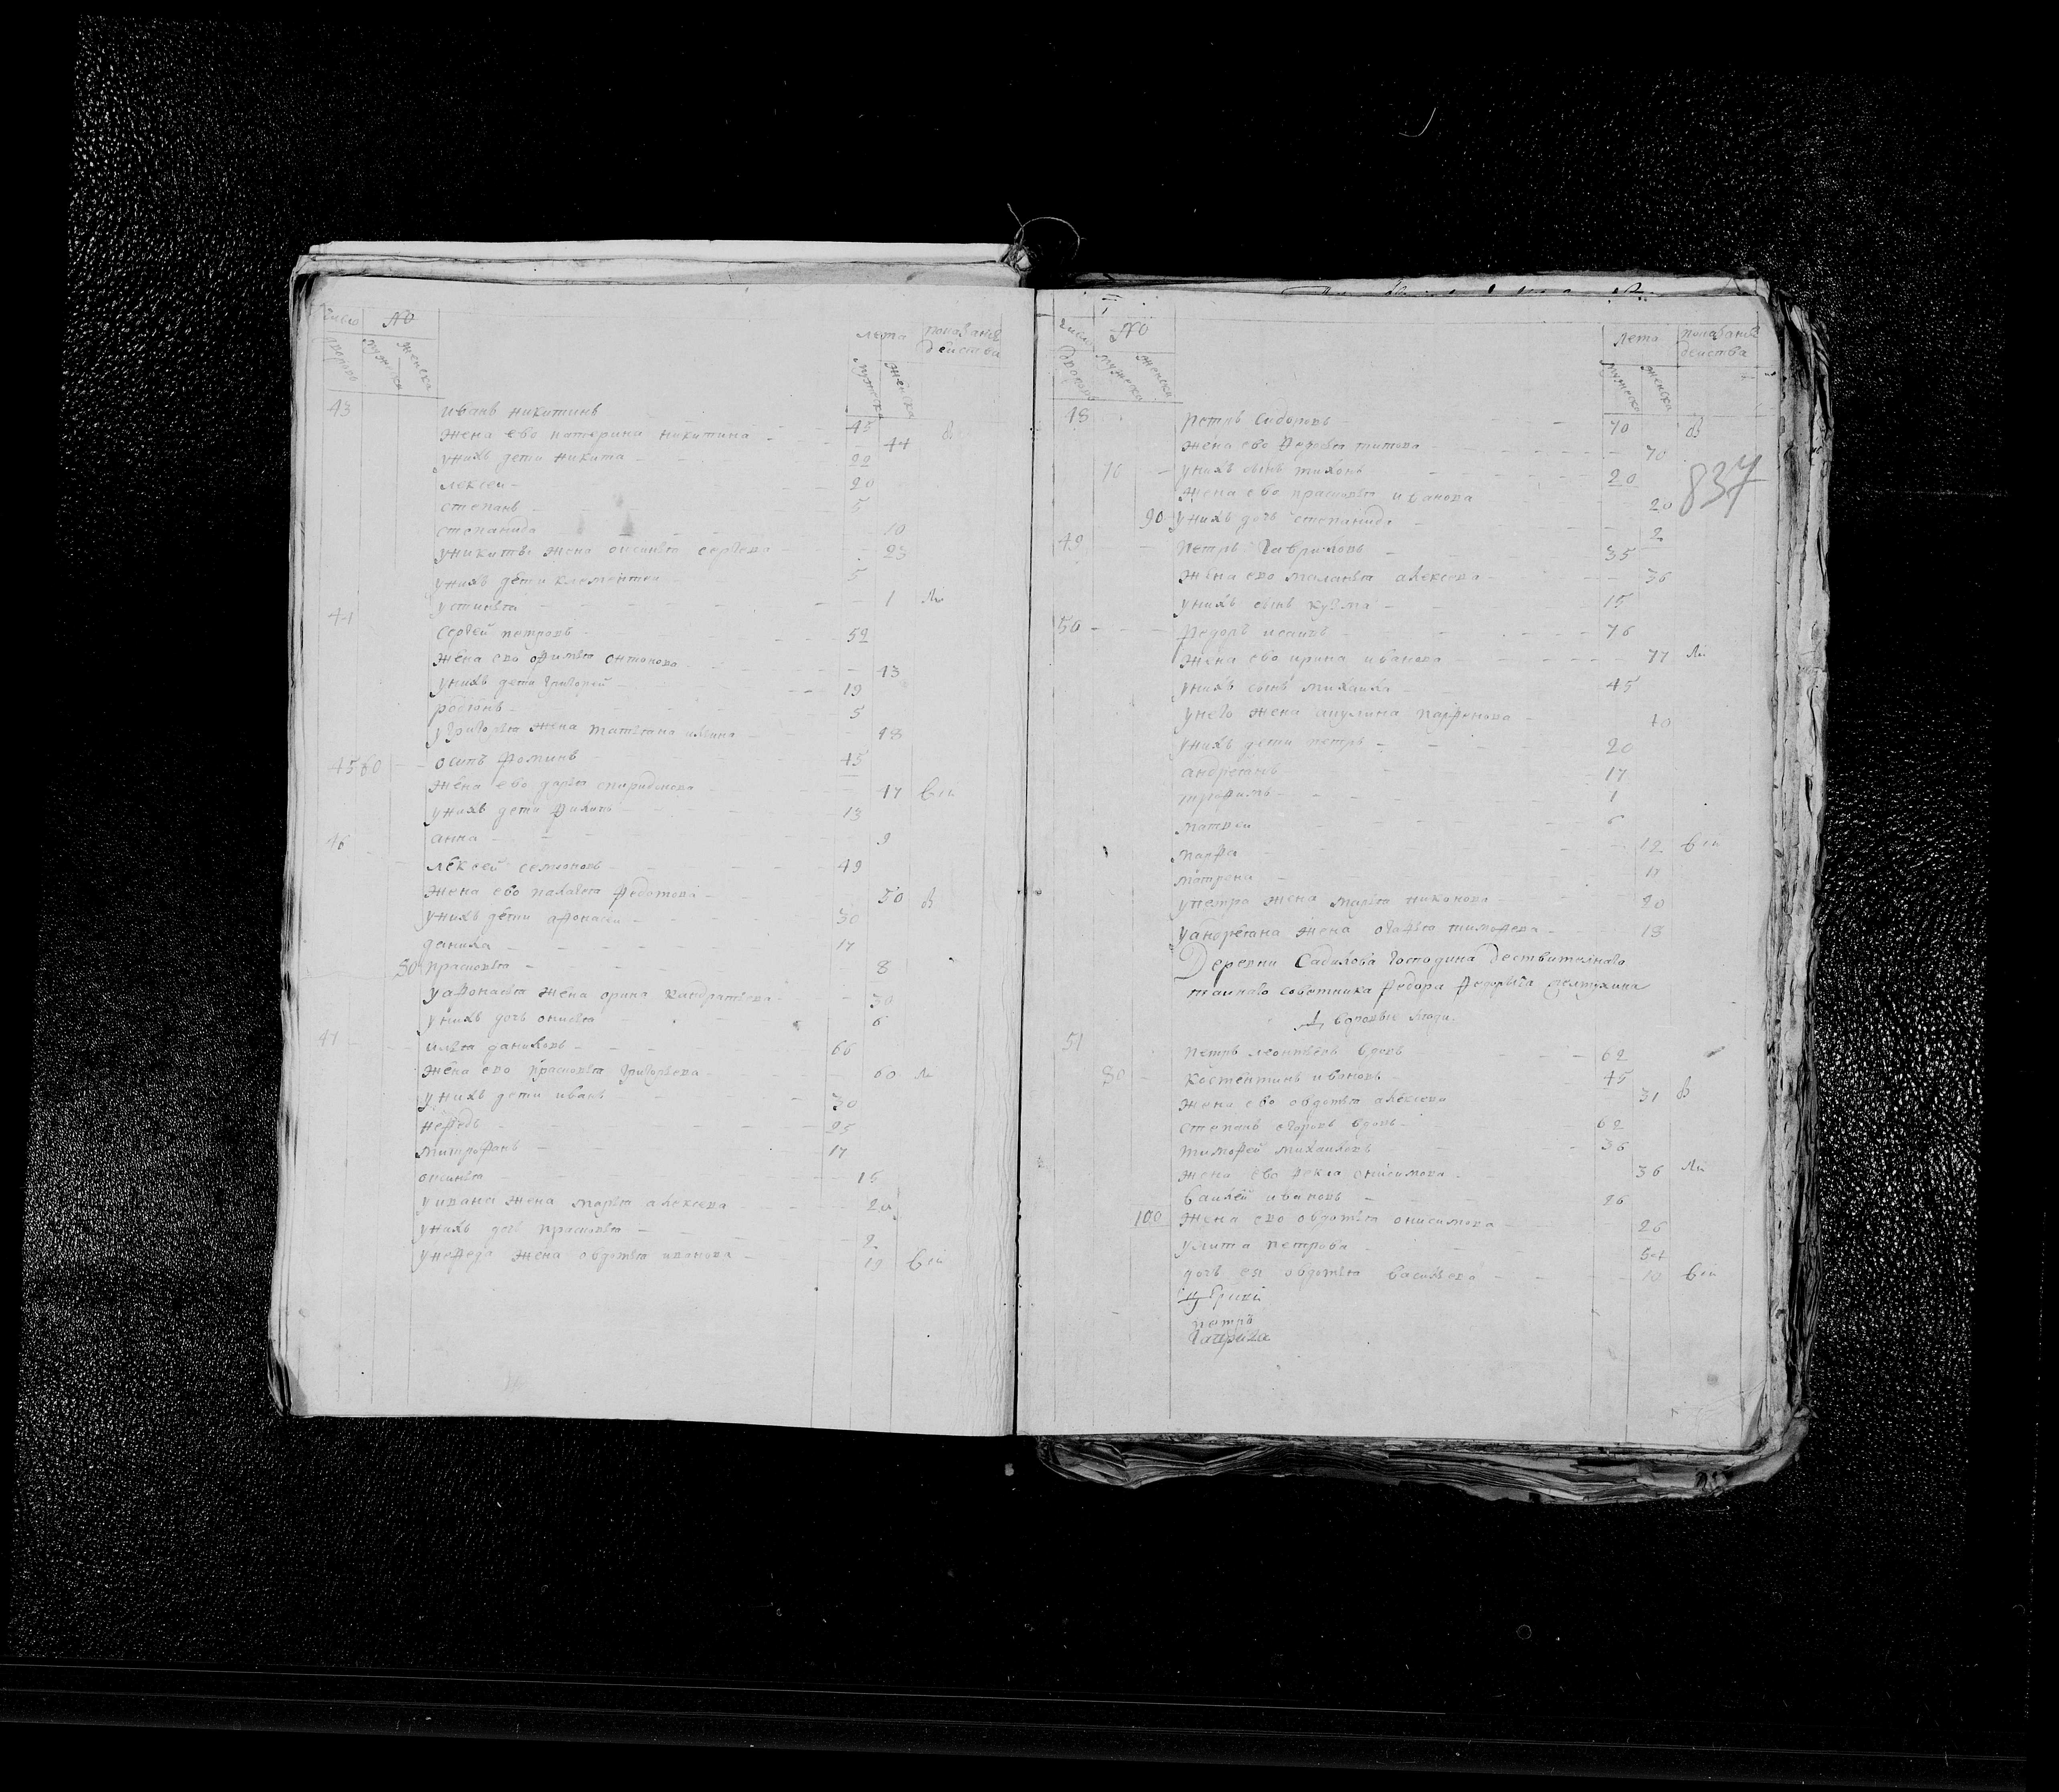 число № лета показание действа
дворовъ мужеска женска мужеска женска
43 иванъ никитинъ 45
жена ево катерина никитина 44
унихъ дети никита 22
лексеи 20
степанъ 5
степанида 10
уникиты жена аксинья сергеева 23
унихъ дети клементеи 5
устинья 1
44 сергей петровъ 52
жена ево офимья онтонова 43
унихъ дети григорей 19
родионъ 5
угригорья жена татьяна ильина 18
45 60 осипъ фоминъ 45
жена ево дарья спиридонова 47
унихъ дети филипъ 13
анна 9
46 лексей семионовъ 49
жена ево палагья федотова 50
унихъ дети афонасеи 30
данила 17
80 прасковья 8
уафонасья жена орина кондратьева 30
унихъ дочь онисья 6
47 илья даниловъ 66
жена ево прасковья григорьева 60
унихъ дети иванъ 30
нефедъ 25
митрофанъ 17
оксинья 15
уивана жена марья алексеева 20
унихъ дочь прасковья 2
унефеда жена овдотья иванова 19
число № лета показание действа
дворовъ мужеска женска мужеска женска
837
48 петръ сидоровъ 70
жена ево федосья титова 70
70 унихъ сынъ тихонъ 20
жена ево прасковья иванова 20
90 унихъ дочь степанида 2
49 петръ гавриловъ 35
жена ево маланья алексеева 36
унихъ сынъ кузма 15
50 федоръ исаивъ 76
жена ево ирина иванова 77
унихъ сынъ михаила 45
унего жена акулина парфенова 40
унихъ дети петръ 20
андреянъ 17
трофимъ 1
матвеи 6
марфа 12
матрена 11
упетра жена марья никонова 20
уандреяна жена огафья тимофеева 18
Деревни Садилова господина деиствителнаго
таинаго советника федора федорыча желтухина
дворовые люди.
51 петръ леонтьевъ вдовъ 62
80 костентинъ ивановъ 45
жена ево овдотья алексеева 31
степанъ егоровъ вдовъ 62
тимофей михаиловъ 36
жена ево фекла онисимова 36
василей ивановъ 26
100 жена ево овдотья онисимова 26
улита петрова 54
дочь ея овдотья васильева 10
петра
гаврила